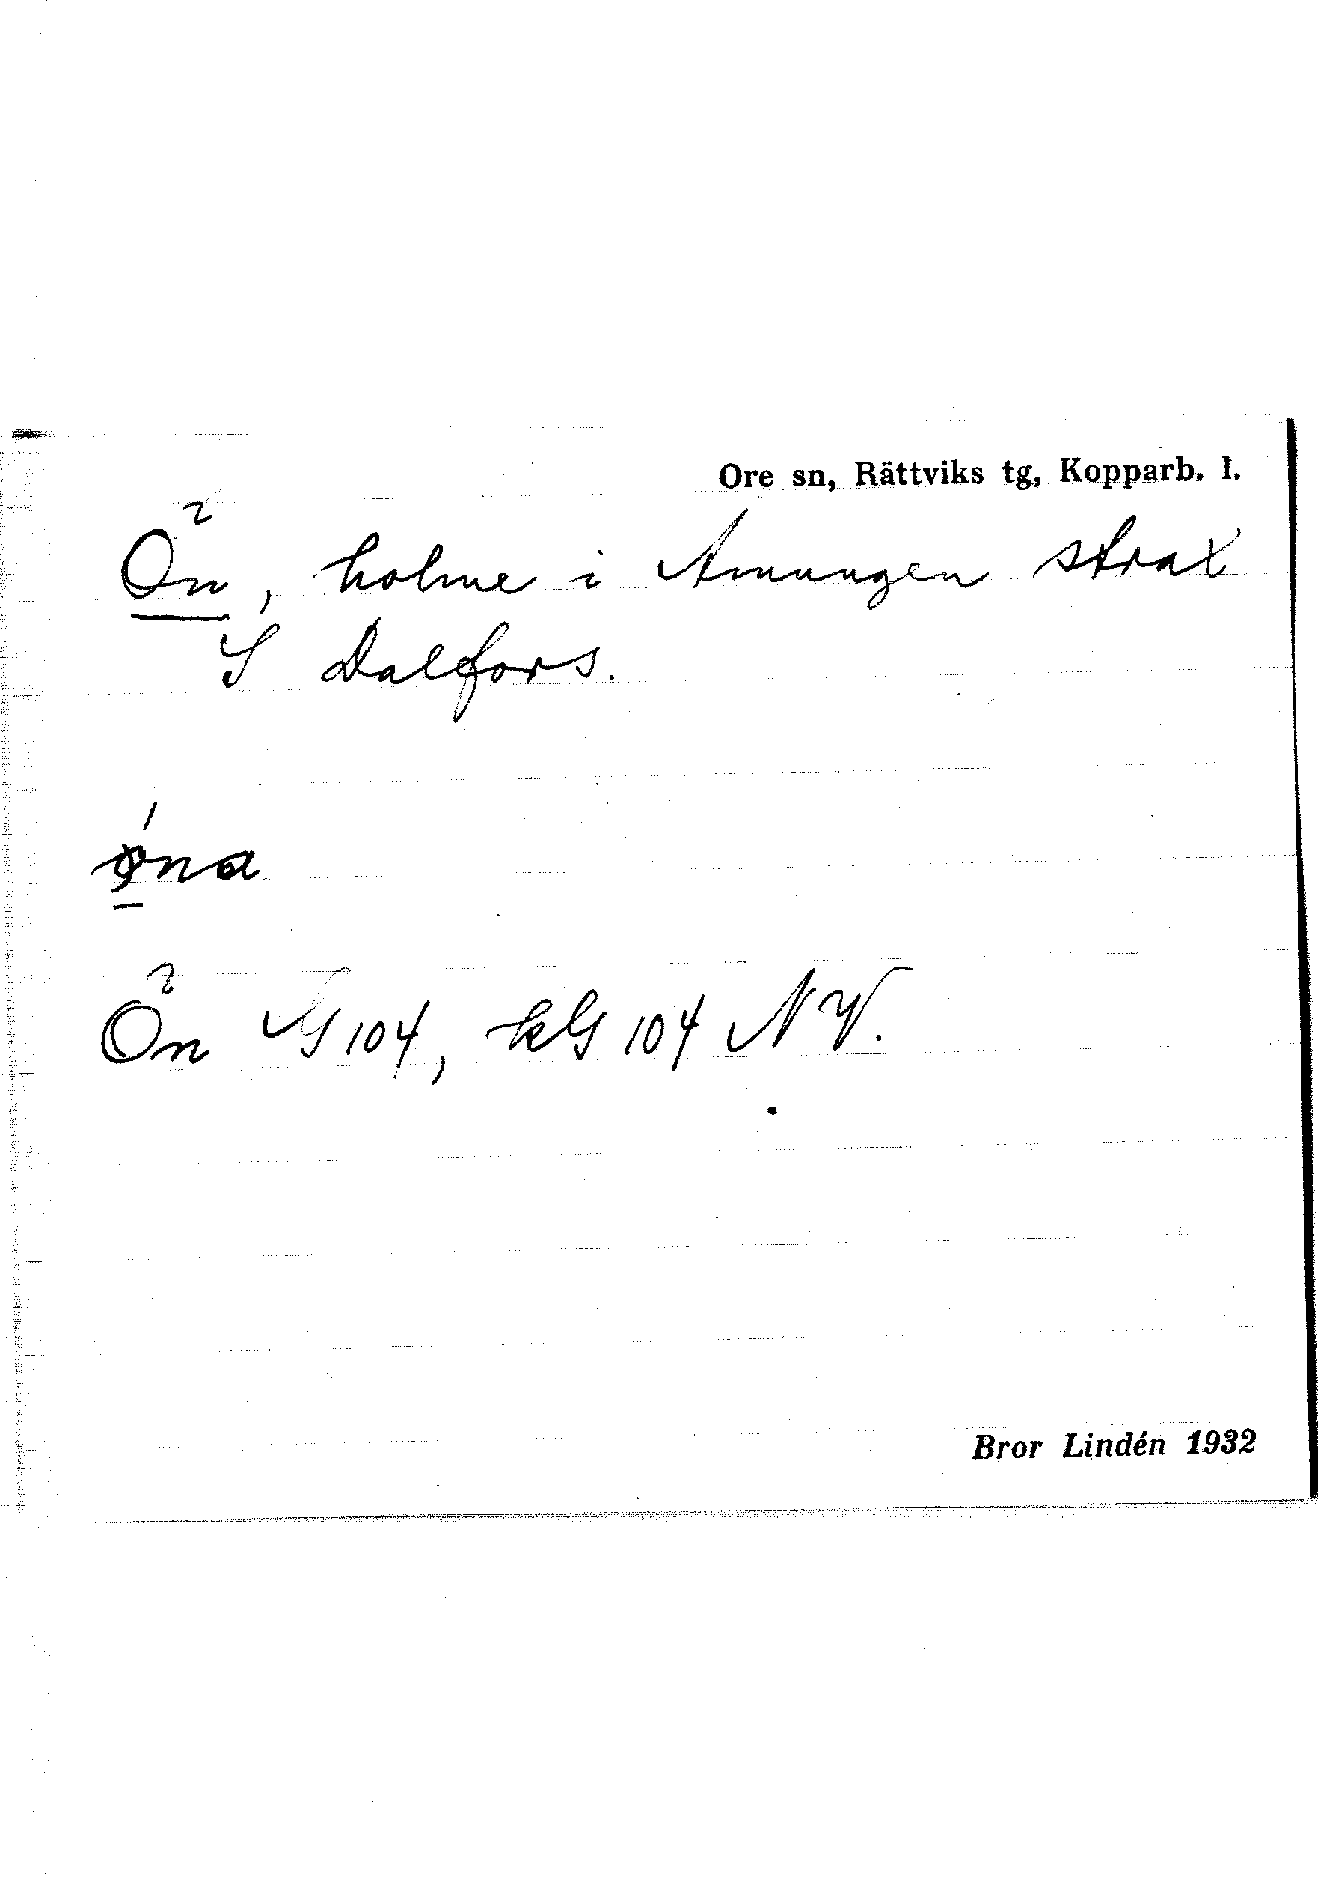 Ore sn, Rättviks tg, Kopparb. l.
Ön, holme i Amungen strax
S Dalfors.
øna
Ön G 104, kG 104 NV.
Bror Lindén 1932